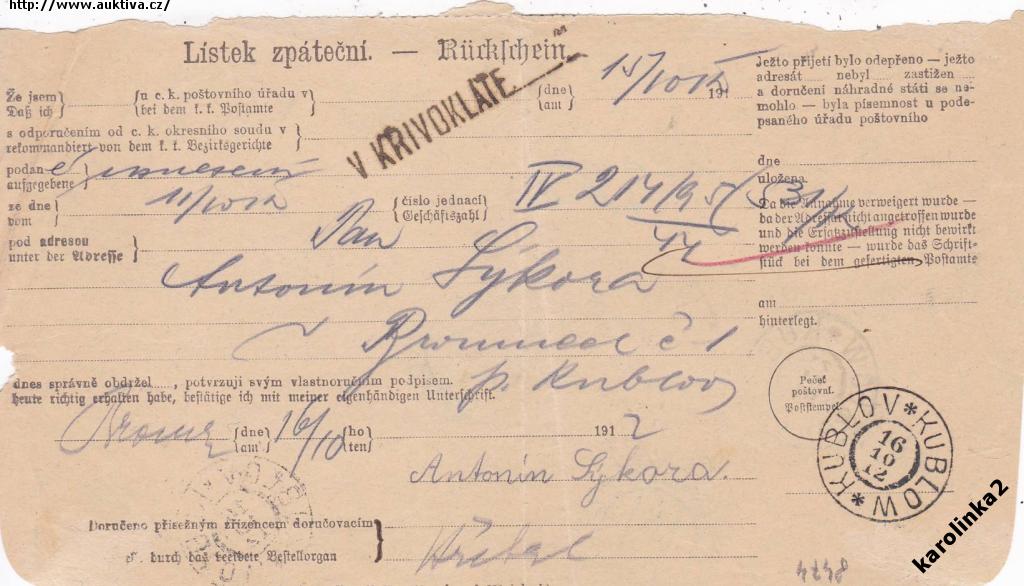 http://www.auktiva.cz/
Lístek zpáteční. — Rückschein.
Že jsem
Daß ich
u c. k. poštovního úřadu v
bei dem k. k. Postamte
V KŘIVOKLÁTĚ
dne
am
15/10
191
s odporučením od c. k. okresního soudu v
rekommandiert von dem k. k. Bezirksgerichte
podané
aufgegebene
usnesení
ze dne
vom
11/10
číslo jednací
Geschäftszahl
IV 214/95
pod adresou
unter der Adresse
Pan
Antonín Sýkora
č 1
p. Kublov
dnes správně obdržel , potvrzuji svým vlastnoručním podpisem.
heute richtig erhalten habe, bestätige ich mit meiner eigenhändigen Unterschrift.
dne
am
16/10
ho
ten
1912
Antonín Sýkora.
Doručeno přísežným zřízencem doručovacím
durch das beeidete Bestellorgan
Ježto přijetí bylo odepřeno — ježto
adresát nebyl zastižen
a doručení náhradné státi se ne-
mohlo — byla písemnost u pode-
psaného úřadu poštovního
dne
uložena.
Da die Annahme verweigert wurde —
da der Adressat nicht angetroffen wurde
und die Ersatzzustellung nicht bewirkt
werden konnte — wurde das Schrift-
stück bei dem gefertigten Postamte
am
hinterlegt.
Pečeť
poštovní.
Poststempel.
KUBLOV * KUBLOW *
16
10
12
karolinka2